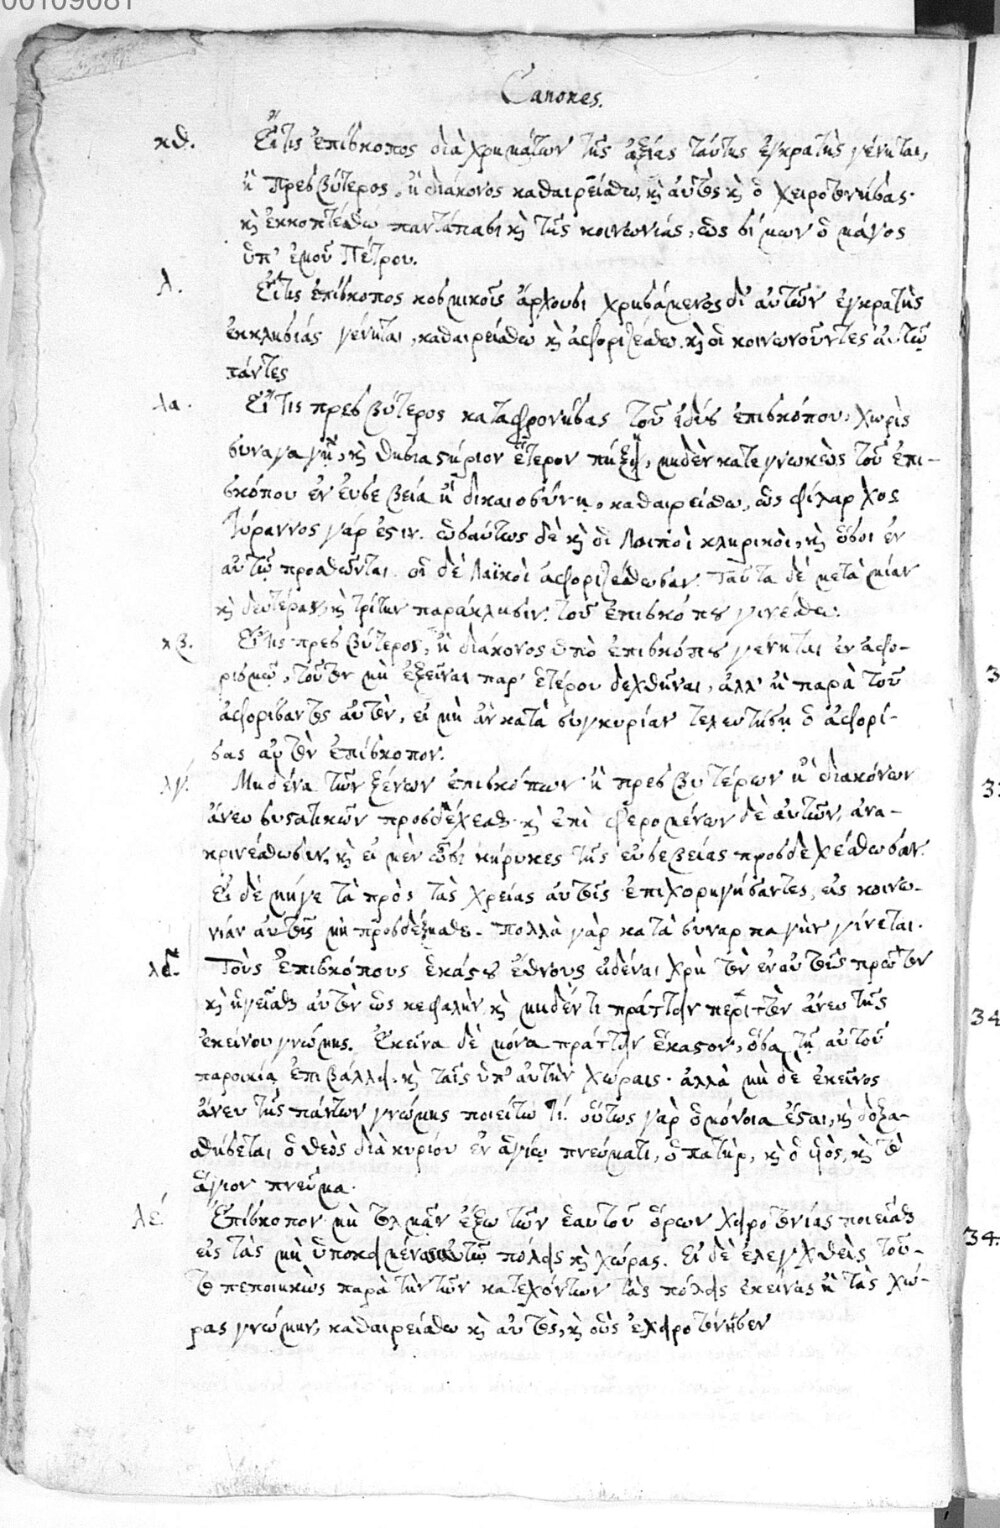 00109081
Canones.
κθ. Εἴ τις ἐπίσκοπος διὰ χρημάτων τῆς ἀξίας ταύτης ἐγκρατὴς γένηται,
ἢ πρεσβύτερος, ἢ διάκονος καθαιρείσθω, κ̀ αὐτὸς κ̀ ὁ χειροτονήσας·
κ̀ ἐκκοπτέσθω παντάπασι κ̀ τῆς κοινωνίας, ὡς σίμων ὁ μάγος
ὑπ' ἐμοῦ Πέτρου.
λ. Εἴ τις ἐπίσκοπος κοσμικοῖς ἄρχουσι χρησάμενος δι' αὐτῶν ἐγκρατὴς
ἐκκλησίας γένηται, καθαιρείσθω κ̀ ἀφοριζέσθω. κ̀ οἱ κοινωνοῦντες αὐτῷ
πάντες
λα. Εἴ τις πρεσβύτερος καταφρονήσας τοῦ ἰδίου ἐπισκόπου, χωρὶς
συναγαγῇ, κ̀ θυσιαστήριον ἕτερον πήξῃ, μηδὲν κατεγνωκὼς τοῦ ἐπι-
σκόπου ἐν εὐσεβείᾳ ἢ δικαιοσύνῃ, καθαιρείσθω, ὡς φίλαρχος
τύραννος γάρ ἐστιν. ὡσαύτως δὲ κ̀ οἱ λοιποὶ κληρικοὶ, κ̀ ὅσοι ἐν
αὐτῷ προσθῶνται. οἱ δὲ λαϊκοὶ ἀφοριζέσθωσαν. Ταῦτα δὲ μετὰ μίαν
κ̀ δευτέραν, κ̀ τρίτην παράκλησιν τοῦ ἐπισκόπου γινέσθω.
κβ. Εἴ τις πρεσβύτερος, ἢ διάκονος ὑπὸ ἐπισκόπου γένηται ἐν ἀφο-
ρισμῷ, τοῦτον μὴ ἐξεῖναι παρ' ἑτέρου δεχθῆναι, ἀλλ' ἢ παρὰ τοῦ
ἀφορίσαντος αὐτὸν, εἰ μὴ ἂν κατὰ συγκυρίαν τελευτήσῃ ὁ ἀφορί-
σας αὐτὸν ἐπίσκοπον.
λγ. Μηδένα τῶν ξένων ἐπισκόπων ἢ πρεσβυτέρων ἢ διακόνων
ἄνευ συστατικῶν προσδέχεσθαι κ̀ ἐπιφερομένων δὲ αὐτῶν, ἀνα-
κρινέσθωσαν, κ̀ εἰ μὲν ὦσι κήρυκες τῆς εὐσεβείας προσδεχέσθωσαν.
Εἰ δὲ μήγε τὰ πρὸς τὰς χρείας αὐτοῖς ἐπιχορηγήσαντες, εἰς κοινω-
νίαν αὐτοὺς μὴ προσδέξησθε. πολλὰ γὰρ κατὰ συναρπαγὴν γίνεται.
λδ. Τοὺς ἐπισκόπους ἑκάστου ἔθνους εἰδέναι χρὴ τὸν ἐν αὐτοῖς πρῶτον
κ̀ ἡγεῖσθαι αὐτὸν ὡς κεφαλὴν, κ̀ μηδέν τι πράττειν περιττὸν ἄνευ τῆς
ἐκείνου γνώμης. Ἐκεῖνα δὲ μόνα πράττειν ἕκαστον, ὅσα τῇ αὐτοῦ
παροικίᾳ ἐπιβάλλει κ̀ ταῖς ὑπ' αὐτὴν χώραις. ἀλλὰ μηδὲ ἐκεῖνος
ἄνευ τῆς πάντων γνώμης ποιείτω τί. οὕτως γὰρ ὁμόνοια ἔσται, κ̀ δοξα-
σθήσεται ὁ θεὸς διὰ κυρίου ἐν ἁγίῳ πνεύματι, ὁ πατὴρ, κ̀ ὁ υἱὸς, κ̀ τὸ
ἅγιον πνεῦμα.
λέ. Ἐπίσκοπον μὴ τολμᾶν ἔξω τῶν ἑαυτοῦ ὅρων χειροτονίας ποιεῖσθαι
εἰς τὰς μὴ ὑποκειμένας αὐτῷ πόλεις κ̀ χώρας. Εἰ δὲ ἐλεγχθείς τοῦ-
το πεποιηκὼς παρὰ τὴν τῶν κατεχόντων τὰς πόλεις ἐκείνας ἢ τὰς χώ-
ρας γνώμην, καθαιρείσθω κ̀ αὐτὸς, κ̀ οὓς ἐχειροτόνησεν
34
34.